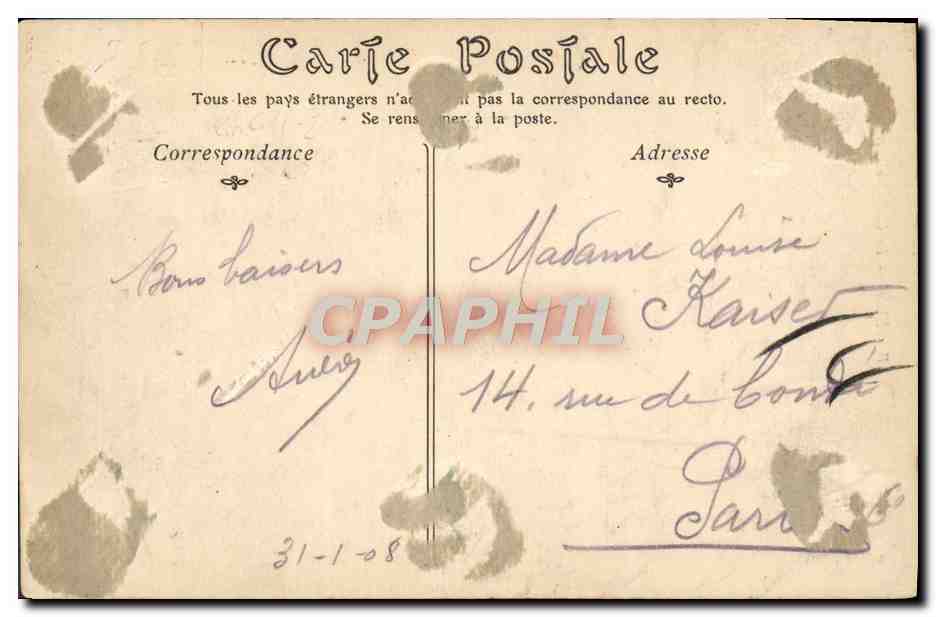 Carte Postale
Tous les pays étrangers n'ac ent pas la correspondance au recto.
Se rens ner à la poste.
Correspondance
Adresse
Bons baisers
31-1-08
Madame Louise
Kaiser
14, rue de Condé
Paris
CPAPHIL